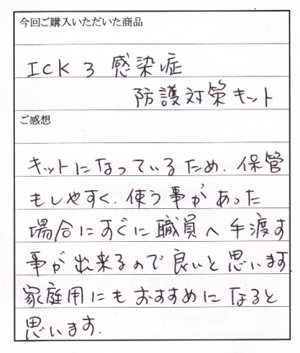 今回ご購入いただいた商品
ICK3 感染症
防護対策キット
ご感想
キットになっているため、保管
もしやすく、使う事があった
場合にすぐに職員へ手渡す
事が出来るので良いと思います
家庭用にもおすすめになると
思います.